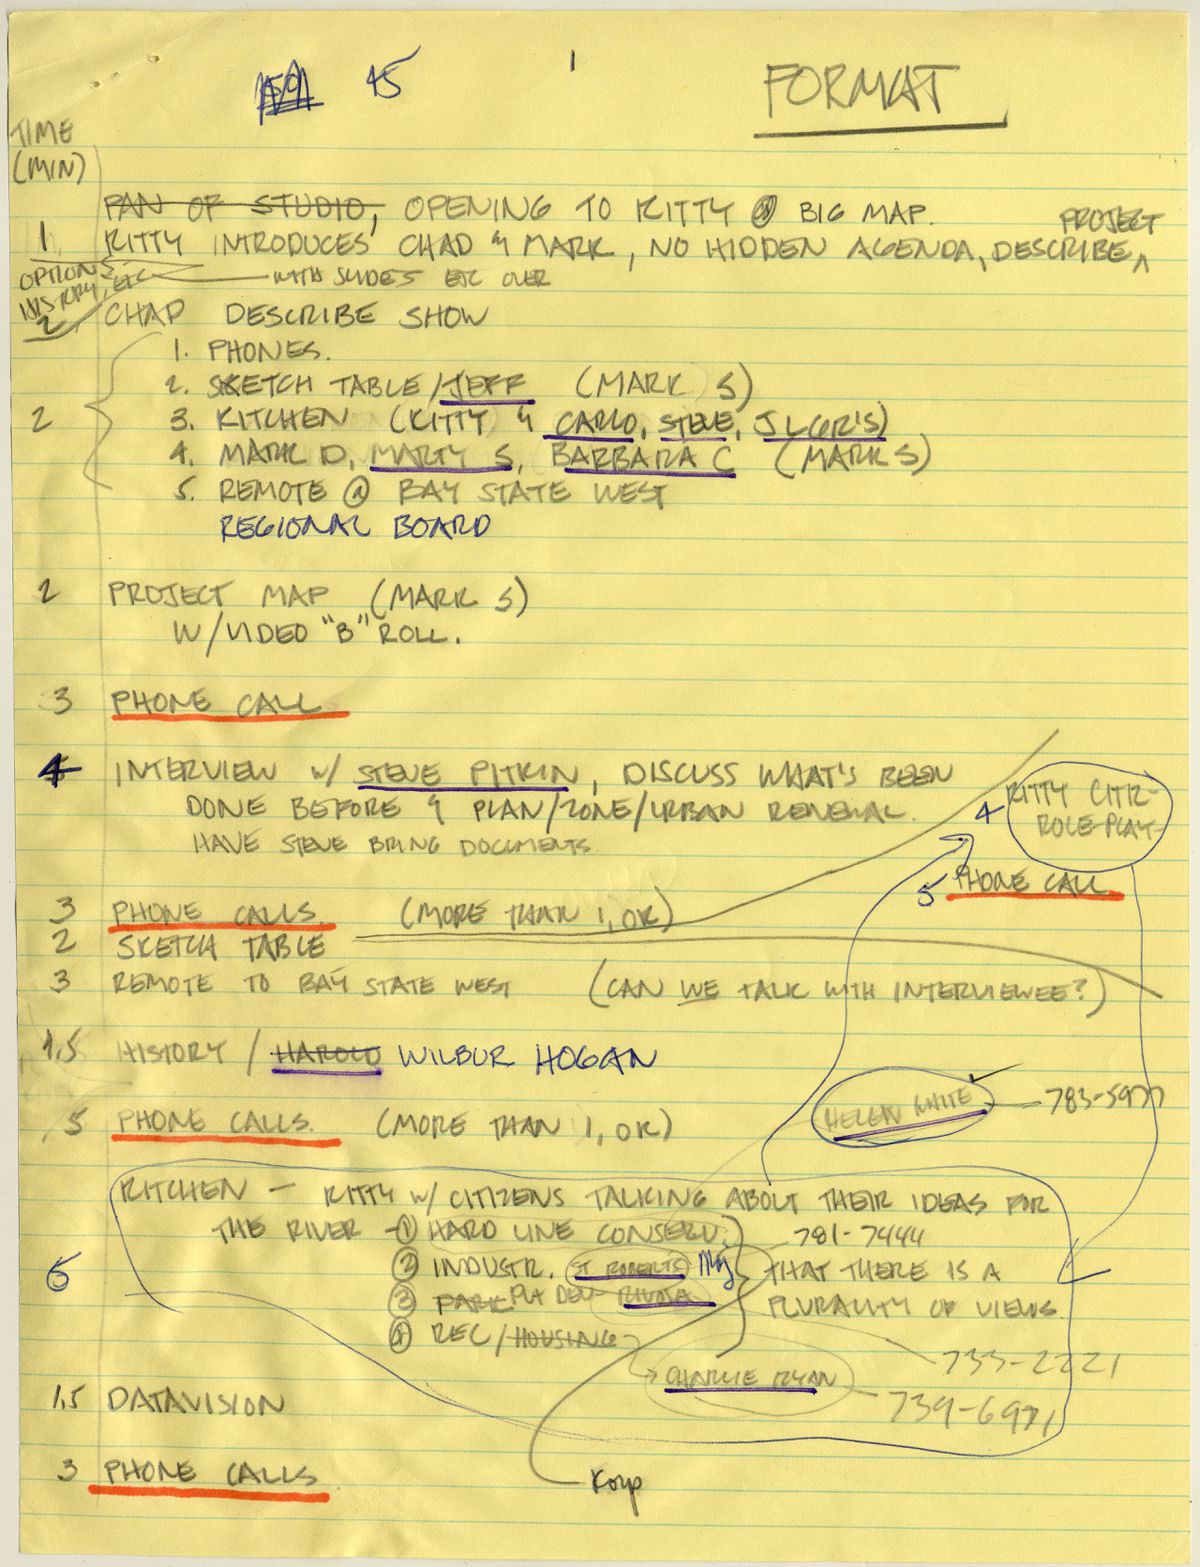 45
1
FORMAT
TIME
(MIN)
PAN OF STUDIO, OPENING TO KITTY @ BIG MAP.
1 KITTY INTRODUCES CHAD & MARK, NO HIDDEN AGENDA, DESCRIBE PROJECT
OPTIONS
HISTORY, ETC
WITH SLIDES ETC OVER
2 CHAD DESCRIBE SHOW
1. PHONES.
2. SKETCH TABLE/JEFF (MARK S)
2 3. KITCHEN (KITTY & CARLO, STEVE, J LGR'S)
4. MARK D, MARTY S, BARBARA C (MARK S)
5. REMOTE @ BAY STATE WEST
REGIONAL BOARD
2 PROJECT MAP (MARK S)
W/VIDEO "B" ROLL.
3 PHONE CALL
4 INTERVIEW W/ STEVE PITKIN, DISCUSS WHAT'S BEEN
DONE BEFORE & PLAN/ZONE/URBAN RENEWAL.
HAVE STEVE BRING DOCUMENTS.
4 KITTY CITZ-
ROLE-PLAY-
5 PHONE CALL
3 PHONE CALLS. (MORE THAN 1, OK)
2 SKETCH TABLE
3 REMOTE TO BAY STATE WEST (CAN WE TALK WITH INTERVIEWEE?)
1.5 HISTORY / HAROLD WILBUR HOGAN
HELEN WHITE 783-5977
.5 PHONE CALLS. (MORE THAN 1, OK)
KITCHEN - KITTY W/ CITIZENS TALKING ABOUT THEIR IDEAS FOR
THE RIVER - 1 HARD LINE CONSERV. 781-7444
6 2 INDUSTR. ST ROBERTS THAT THERE IS A
3 PARK PLA DEV- PLURALITY OF VIEWS.
4 REC/HOUSING
733-2221
CHARLIE RYAN
739-6971
1.5 DATAVISION
3 PHONE CALLS
Korp